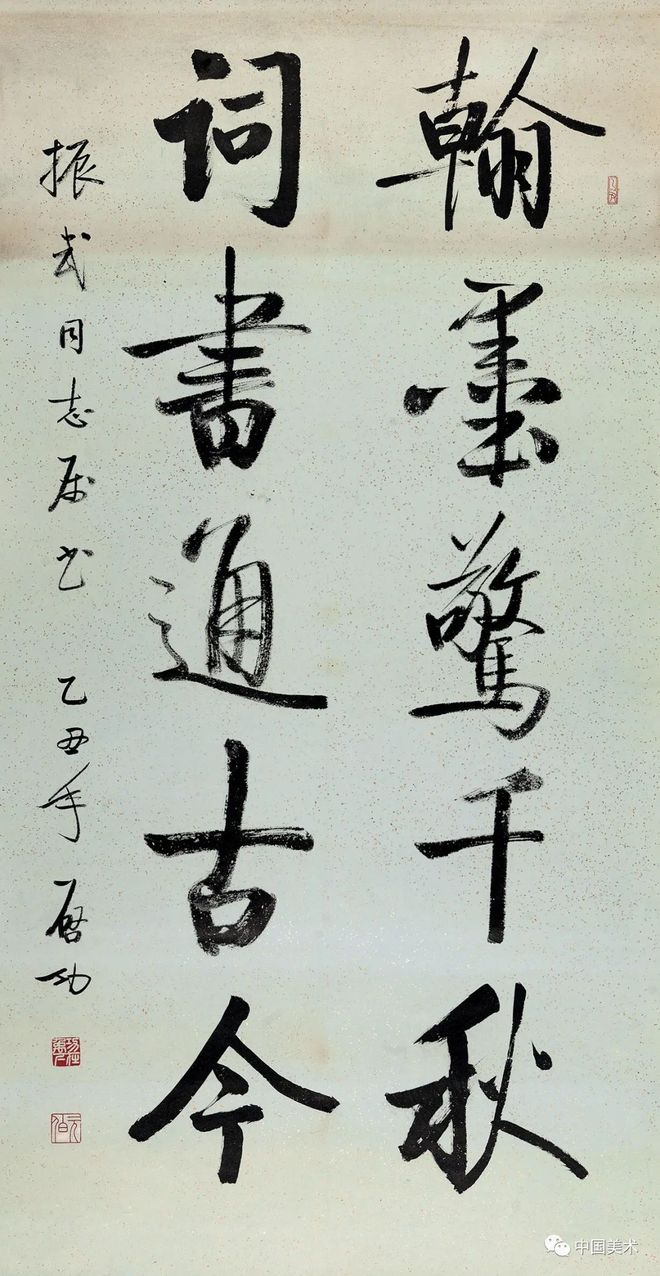 翰墨驚千秋
詞書通古今
振武同志属书 乙丑年 启功
中国美术